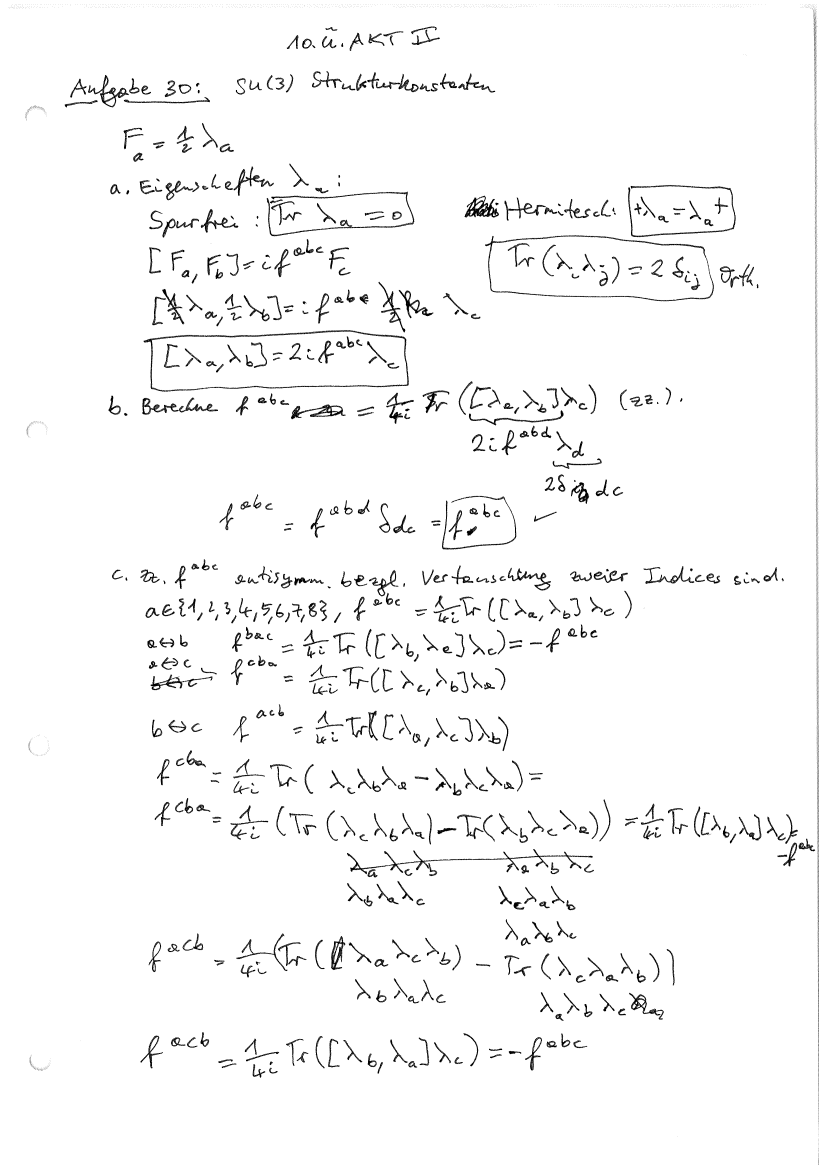 10. Ü. AKT II
Aufgabe 30: SU(3) Strukturkonstanten
F_a = 1/2 λ_a
a. Eigenschaften λ_a:
Spurfrei: Tr λ_a = 0 Hermitesch: +λ_a = λ_a^+
[F_a, F_b] = i f^{abc} F_c Tr(λ_i λ_j) = 2 δ_{ij} Orth.
[1/2 λ_a, 1/2 λ_b] = i f^{abc} 1/2 λ_c
[λ_a, λ_b] = 2i f^{abc} λ_c
b. Berechne f^{abc} = 1/4i Tr([λ_a, λ_b] λ_c) (zz.).
2i f^{abd} λ_d
2δ_{dc}
f^{abc} = f^{abd} δ_{dc} = f^{abc} ✓
c. zz. f^{abc} antisymm. bezgl. Vertauschung zweier Indices sind.
a∈{1,2,3,4,5,6,7,8}, f^{abc} = 1/4i Tr([λ_a, λ_b] λ_c)
a↔b f^{bac} = 1/4i Tr([λ_b, λ_a] λ_c) = -f^{abc}
a↔c
b↔c f^{cba} = 1/4i Tr([λ_c, λ_b] λ_a)
b↔c f^{acb} = 1/4i Tr([λ_a, λ_c] λ_b)
f^{cba} = 1/4i Tr(λ_c λ_b λ_a - λ_b λ_c λ_a) =
f^{cba} = 1/4i (Tr(λ_c λ_b λ_a) - Tr(λ_b λ_c λ_a)) = 1/4i Tr([λ_b, λ_a] λ_c) =
-f^{abc}
λ_a λ_c λ_b λ_a λ_b λ_c
λ_b λ_a λ_c λ_c λ_a λ_b
λ_a λ_b λ_c
f^{acb} = 1/4i (Tr(λ_a λ_c λ_b) - Tr(λ_c λ_a λ_b))
λ_b λ_a λ_c λ_a λ_b λ_c
f^{acb} = 1/4i Tr([λ_b, λ_a] λ_c) = -f^{abc}